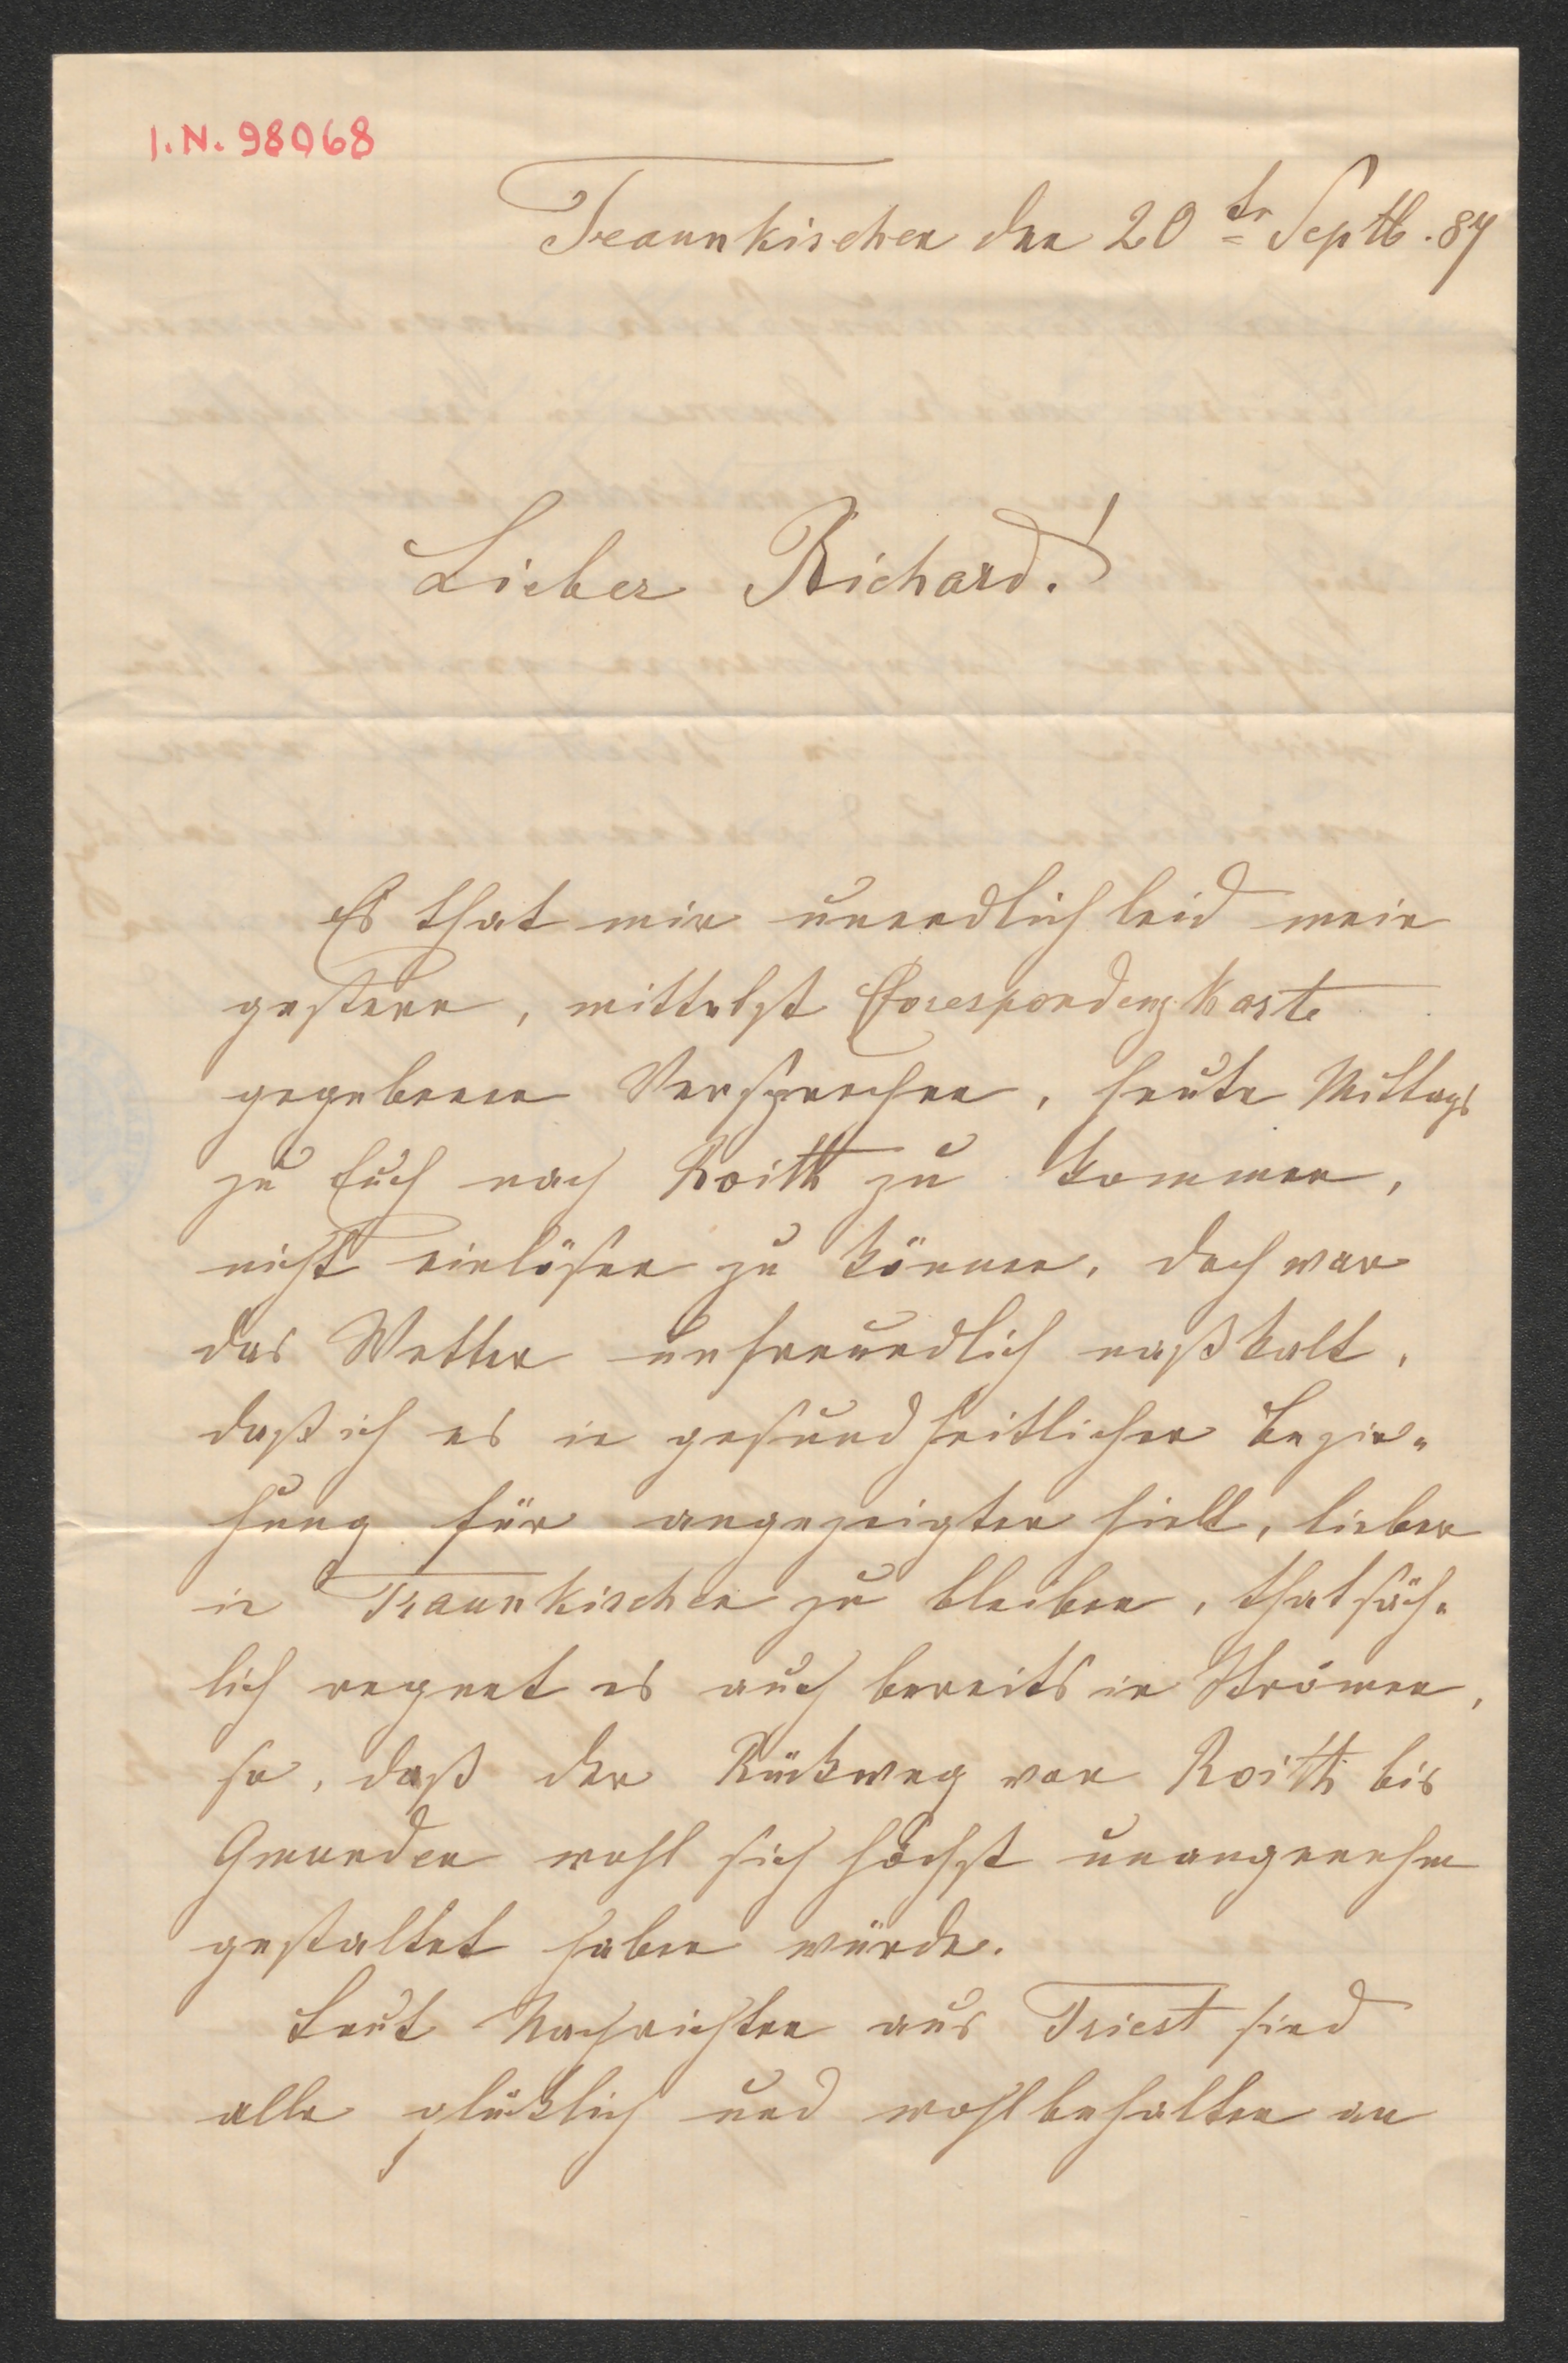 I.N. 98068
Traunkirchen den 20tn Septb. 87
Lieber Richard!
Es that mir unendlich leid mein
gestern, mittelst Corespondenzkarte
gegebenen Versprechen, heute Mittags
zu Euch nach Roith zu kommen,
nicht einlösen zu können, doch war
das Wetter unfreundlich naßkalt,
daß ich es in gesundheitlicher Bezie-
hung für angezeigter hielt, lieber
in Traunkirchen zu bleiben, thatsäch-
lich regnet es auch bereits in Strömen,
so, daß der Rückweg von Roith bis
Gmunden wohl sich höchst unangenehm
gestaltet haben würde.
Laut Nachrichten aus Triest sind
alle glücklich und wohlbehalten an